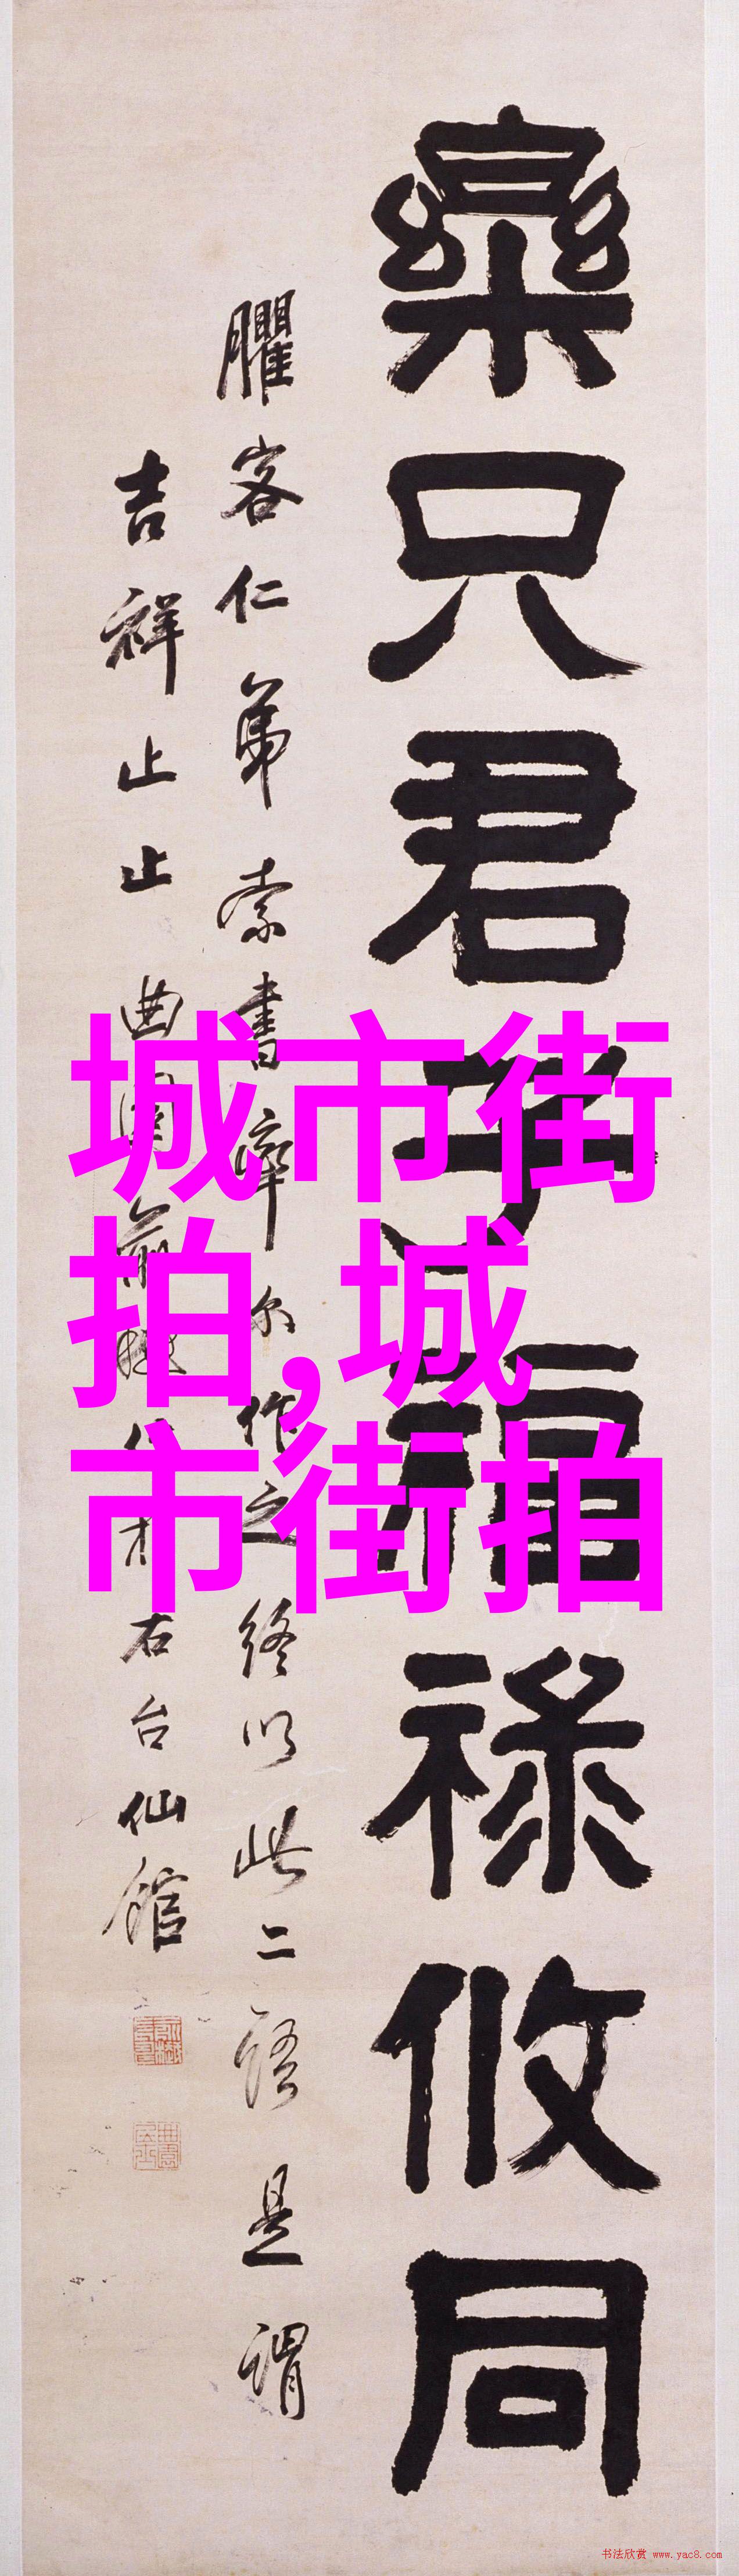 樂只君子福祿攸同
臞客仁弟索書率尔作之終以此二語是謂
吉祥止止曲園俞樾 右台仙館
城市街
拍,城
市街拍
书法欣赏 www.yac8.com